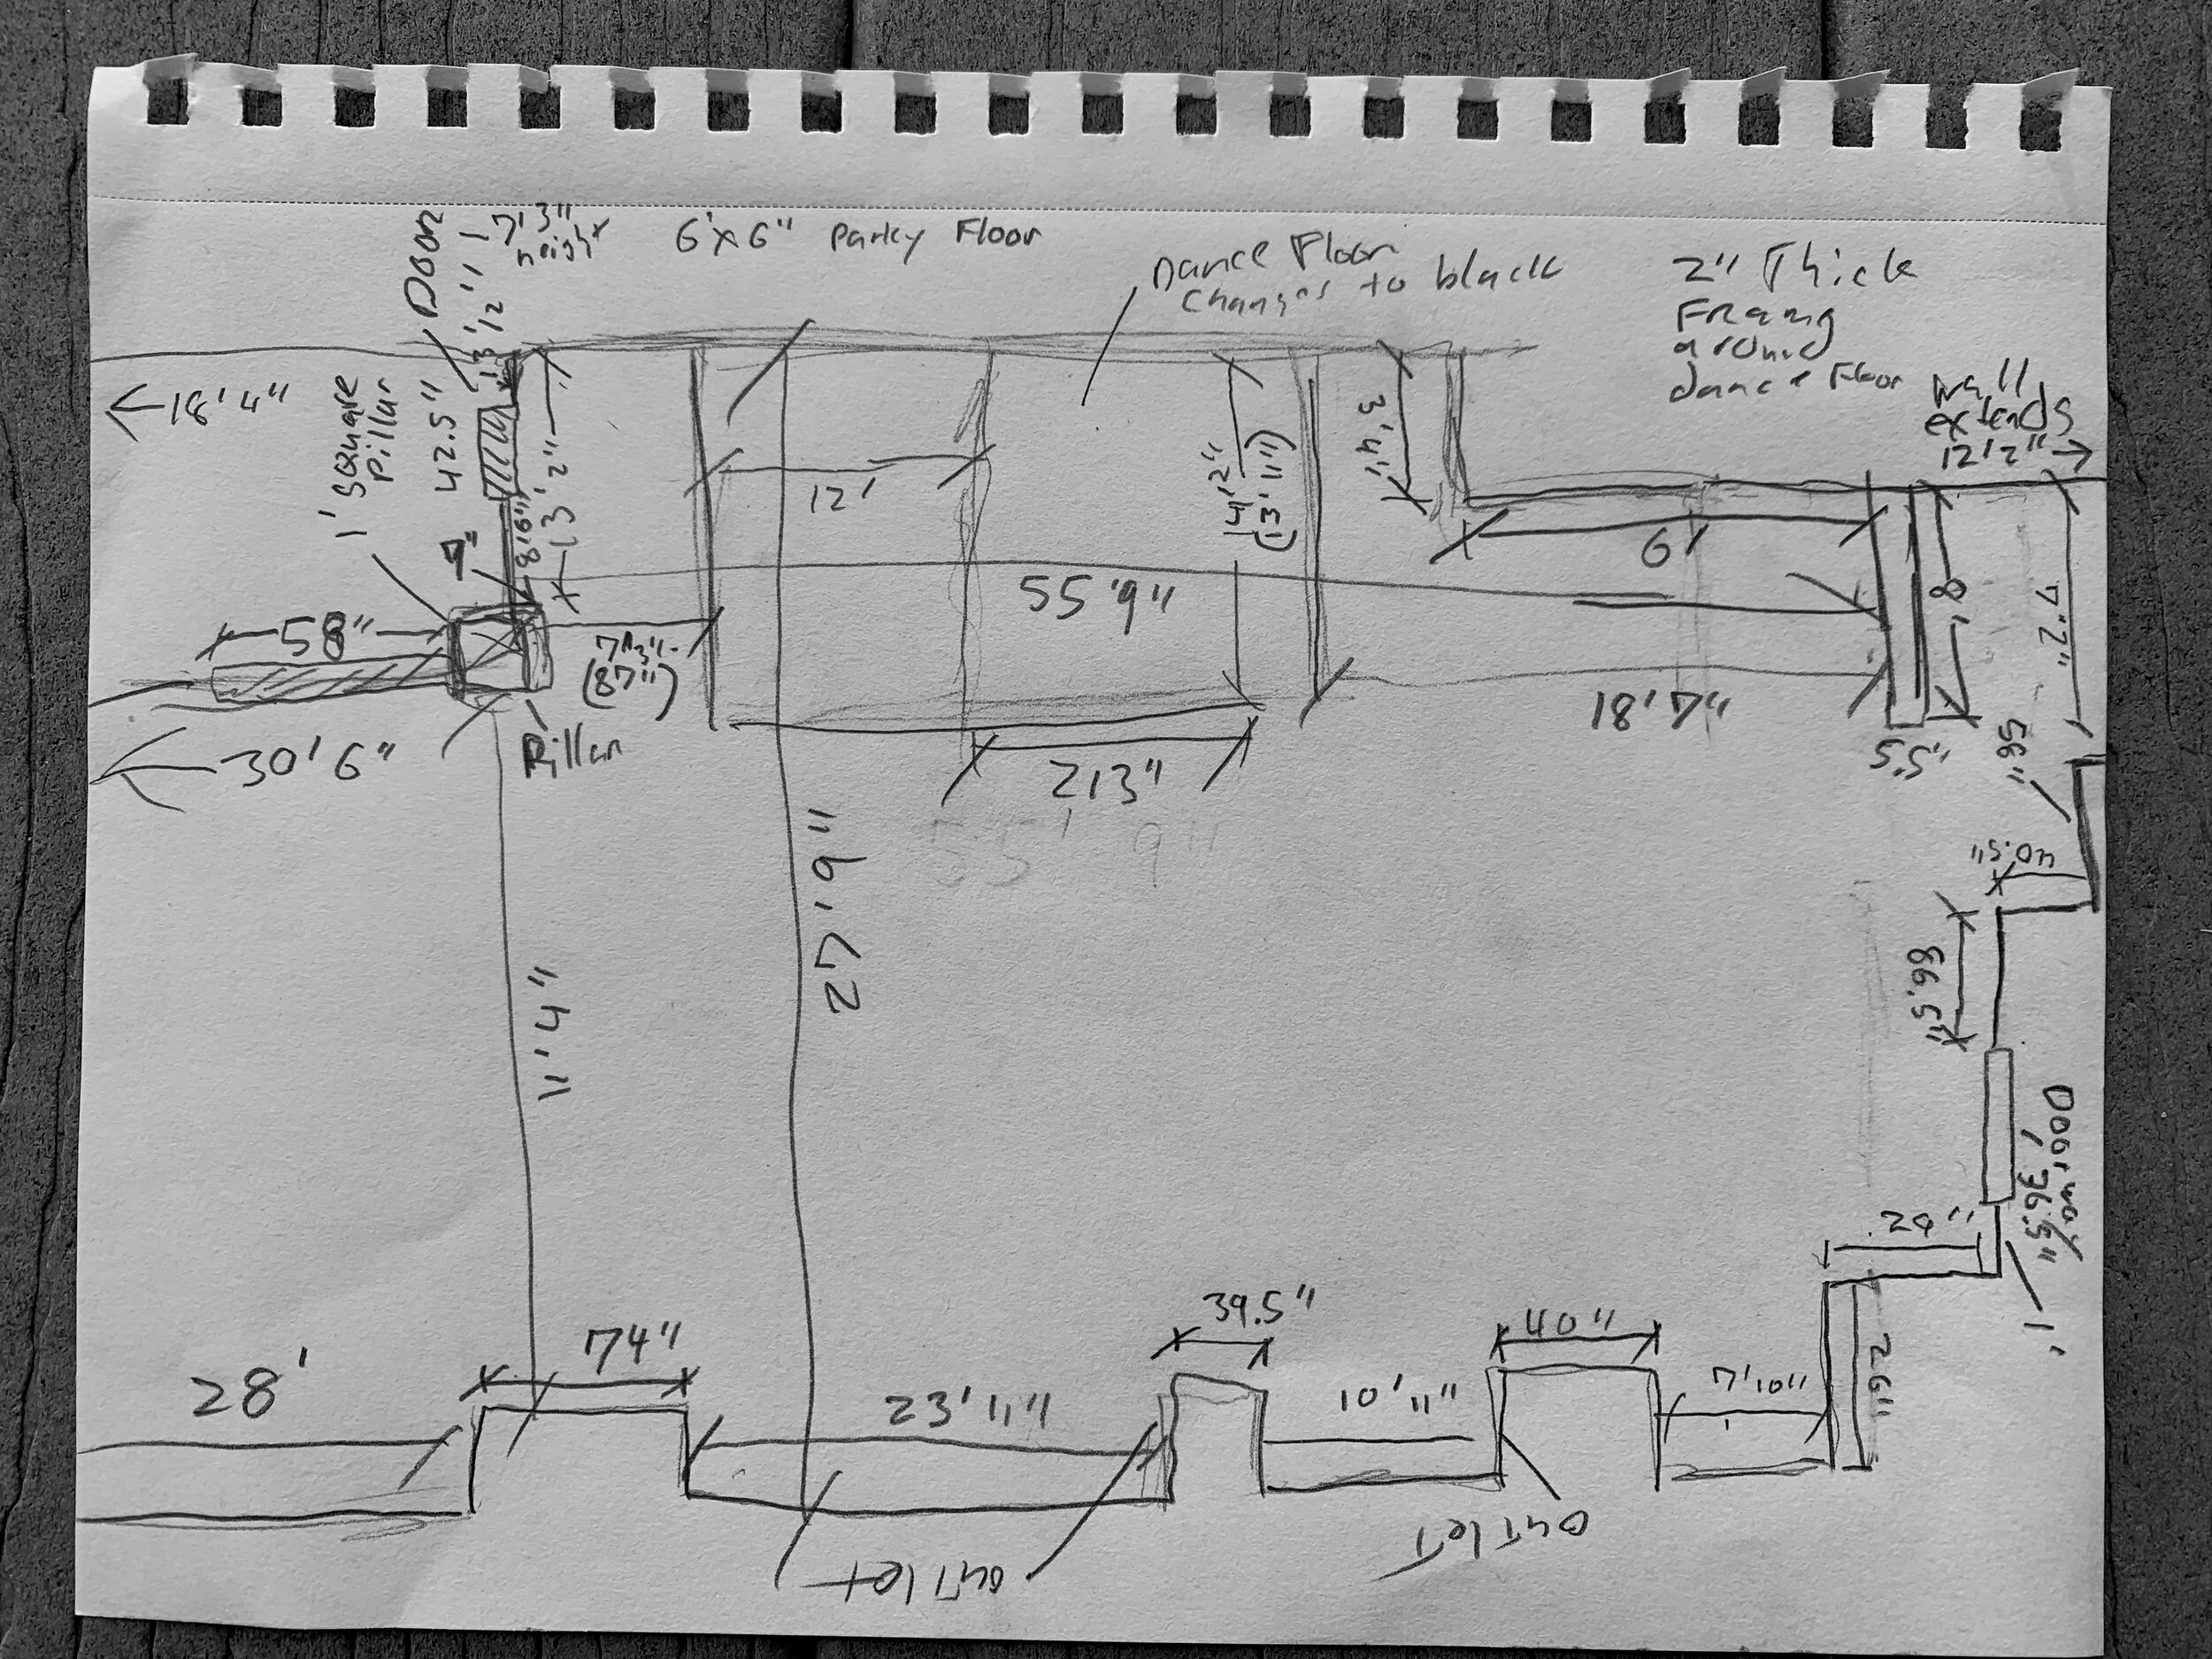 Door
7'3"
height
6'x6" Parky Floor
Dance Floor
changes to black
2" Thick
Framg
around
dance Floor
wall
extends
12'2" →
← 18'4"
1' Square
Pillar
42.5"
13'2"
12'
14'2"
(13'11")
3'4"
6'
8'
7'2"
7"
8'6"
58"
(87")
55'9"
18'7"
5.5"
58"
← 30'6"
Pillar
213"
55'9"
27'9"
40.5"
66.5"
11'4"
Doorway
36.5"
24"
1'
28'
74"
39.5"
40"
23'11"
10'11"
7'10"
26"
outlet
outlet